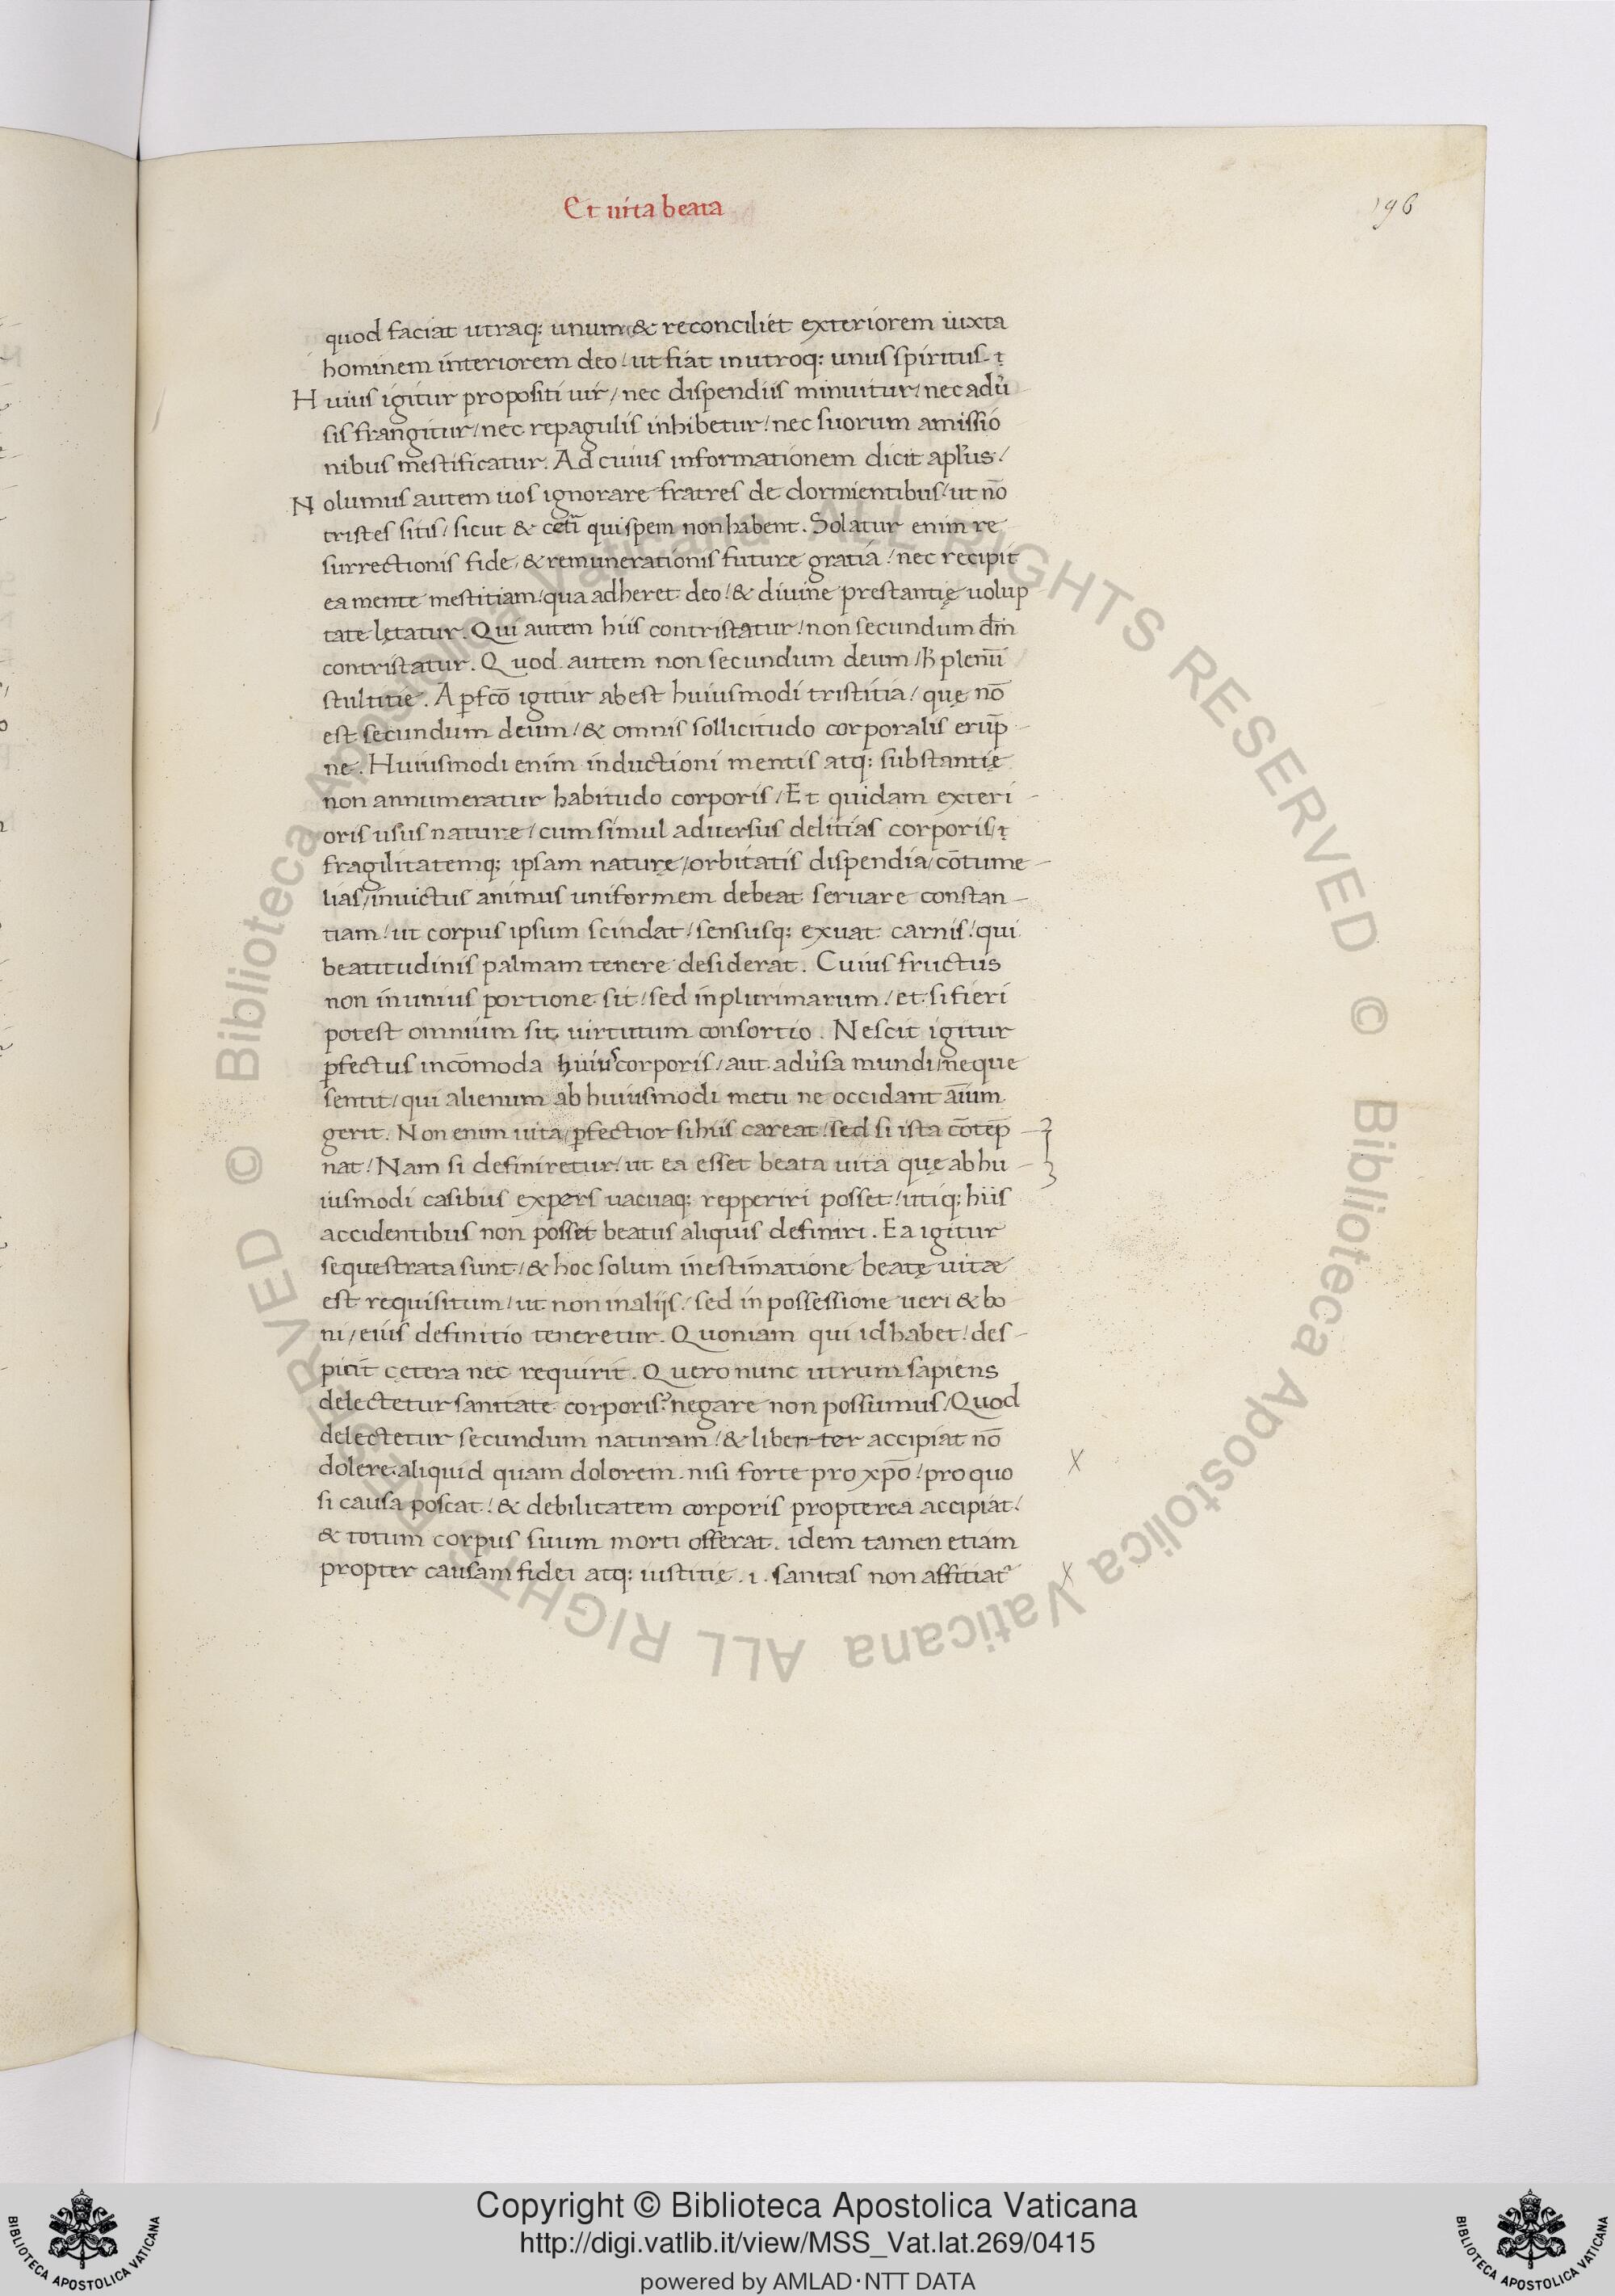 Et uita beata
196
quod faciat utraq; unum & reconciliet exteriorem iuxta
hominem interiorem deo / ut fiat in utroq; unus spiritus.
Huius igitur propositi uir / nec dispendiis minuitur / nec adu̓
sis frangitur / nec repagulis inhibetur / nec suorum amissio
nibus mestificatur. Ad cuius informationem dicit apl̓us /
Nolumus autem uos ignorare fratres de dormientibus / ut nō
tristes sitis / sicut & cet̄i qui spem non habent. Solatur enim re
surrectionis fide / & remunerationis future gratia / nec recipit
ea mente mestitiam / qua adheret deo / & diuine prestantię uolup
tate lętatur. Qui autem hiis contristatur / non secundum dm̄
contristatur. Quod autem non secundum deum / h̓ plenū
stultitie. A ꝑfcō igitur abest huiusmodi tristitia / quę nō
est secundum deum / & omnis sollicitudo corporalis erūp
ne. Huiusmodi enim inductioni mentis atq; substantię
non annumeratur habitudo corporis / Et quidam exteri
oris usus nature / cum simul aduersus delitias corporis /
fragilitatemq; ipsam naturę / orbitatis dispendia / cōtume
lias / inuictus animus uniformem debeat seruare constan
tiam / ut corpus ipsum scindat / sensusq; exuat carnis / qui
beatitudinis palmam tenere desiderat. Cuius fructus
non in unius portione sit / sed in plurimarum / et si fieri
potest omnium sit uirtutum consortio. Nescit igitur
ꝑfectus incōmoda huius corporis / aut adu̓sa mundi / neque
sentit / qui alienum ab huiusmodi metu ne occidant aīum
gerit. Non enim uita / ꝑfectior si hiis careat / sed si ista cōtēp
nat / Nam si definiretur / ut ea esset beata uita quę ab hu
iusmodi casibus expers uacuaq; repperiri posset / utiq; hiis
accidentibus non posset beatus aliquis definiri. Ea igitur
sequestrata sunt / & hoc solum in estimatione beatę uitæ
est requisitum / ut non in alijs / sed in possessione ueri & bo
ni / eius definitio teneretur. Quoniam qui id habet / des
picit cetera nec requirit. Quero nunc utrum sapiens
delectetur sanitate corporis? negare non possumus / Quod
delectetur secundum naturam / & libenter accipiat nō
dolere aliquid quam dolorem. nisi forte pro xp̄o / pro quo
si causa poscat / & debilitatem corporis propterea accipiat /
& totum corpus suum morti offerat. idem tamen etiam
propter causam fidei atq; iustitię .i. sanitas non affitiat᷒
© Biblioteca Apostolica Vaticana ALL RIGHTS RESERVED © Biblioteca Apostolica Vaticana ALL RIGHTS RESERVED
Copyright © Biblioteca Apostolica Vaticana
http://digi.vatlib.it/view/MSS_Vat.lat.269/0415
powered by AMLAD·NTT DATA
BIBLIOTECA APOSTOLICA VATICANA
BIBLIOTECA APOSTOLICA VATICANA